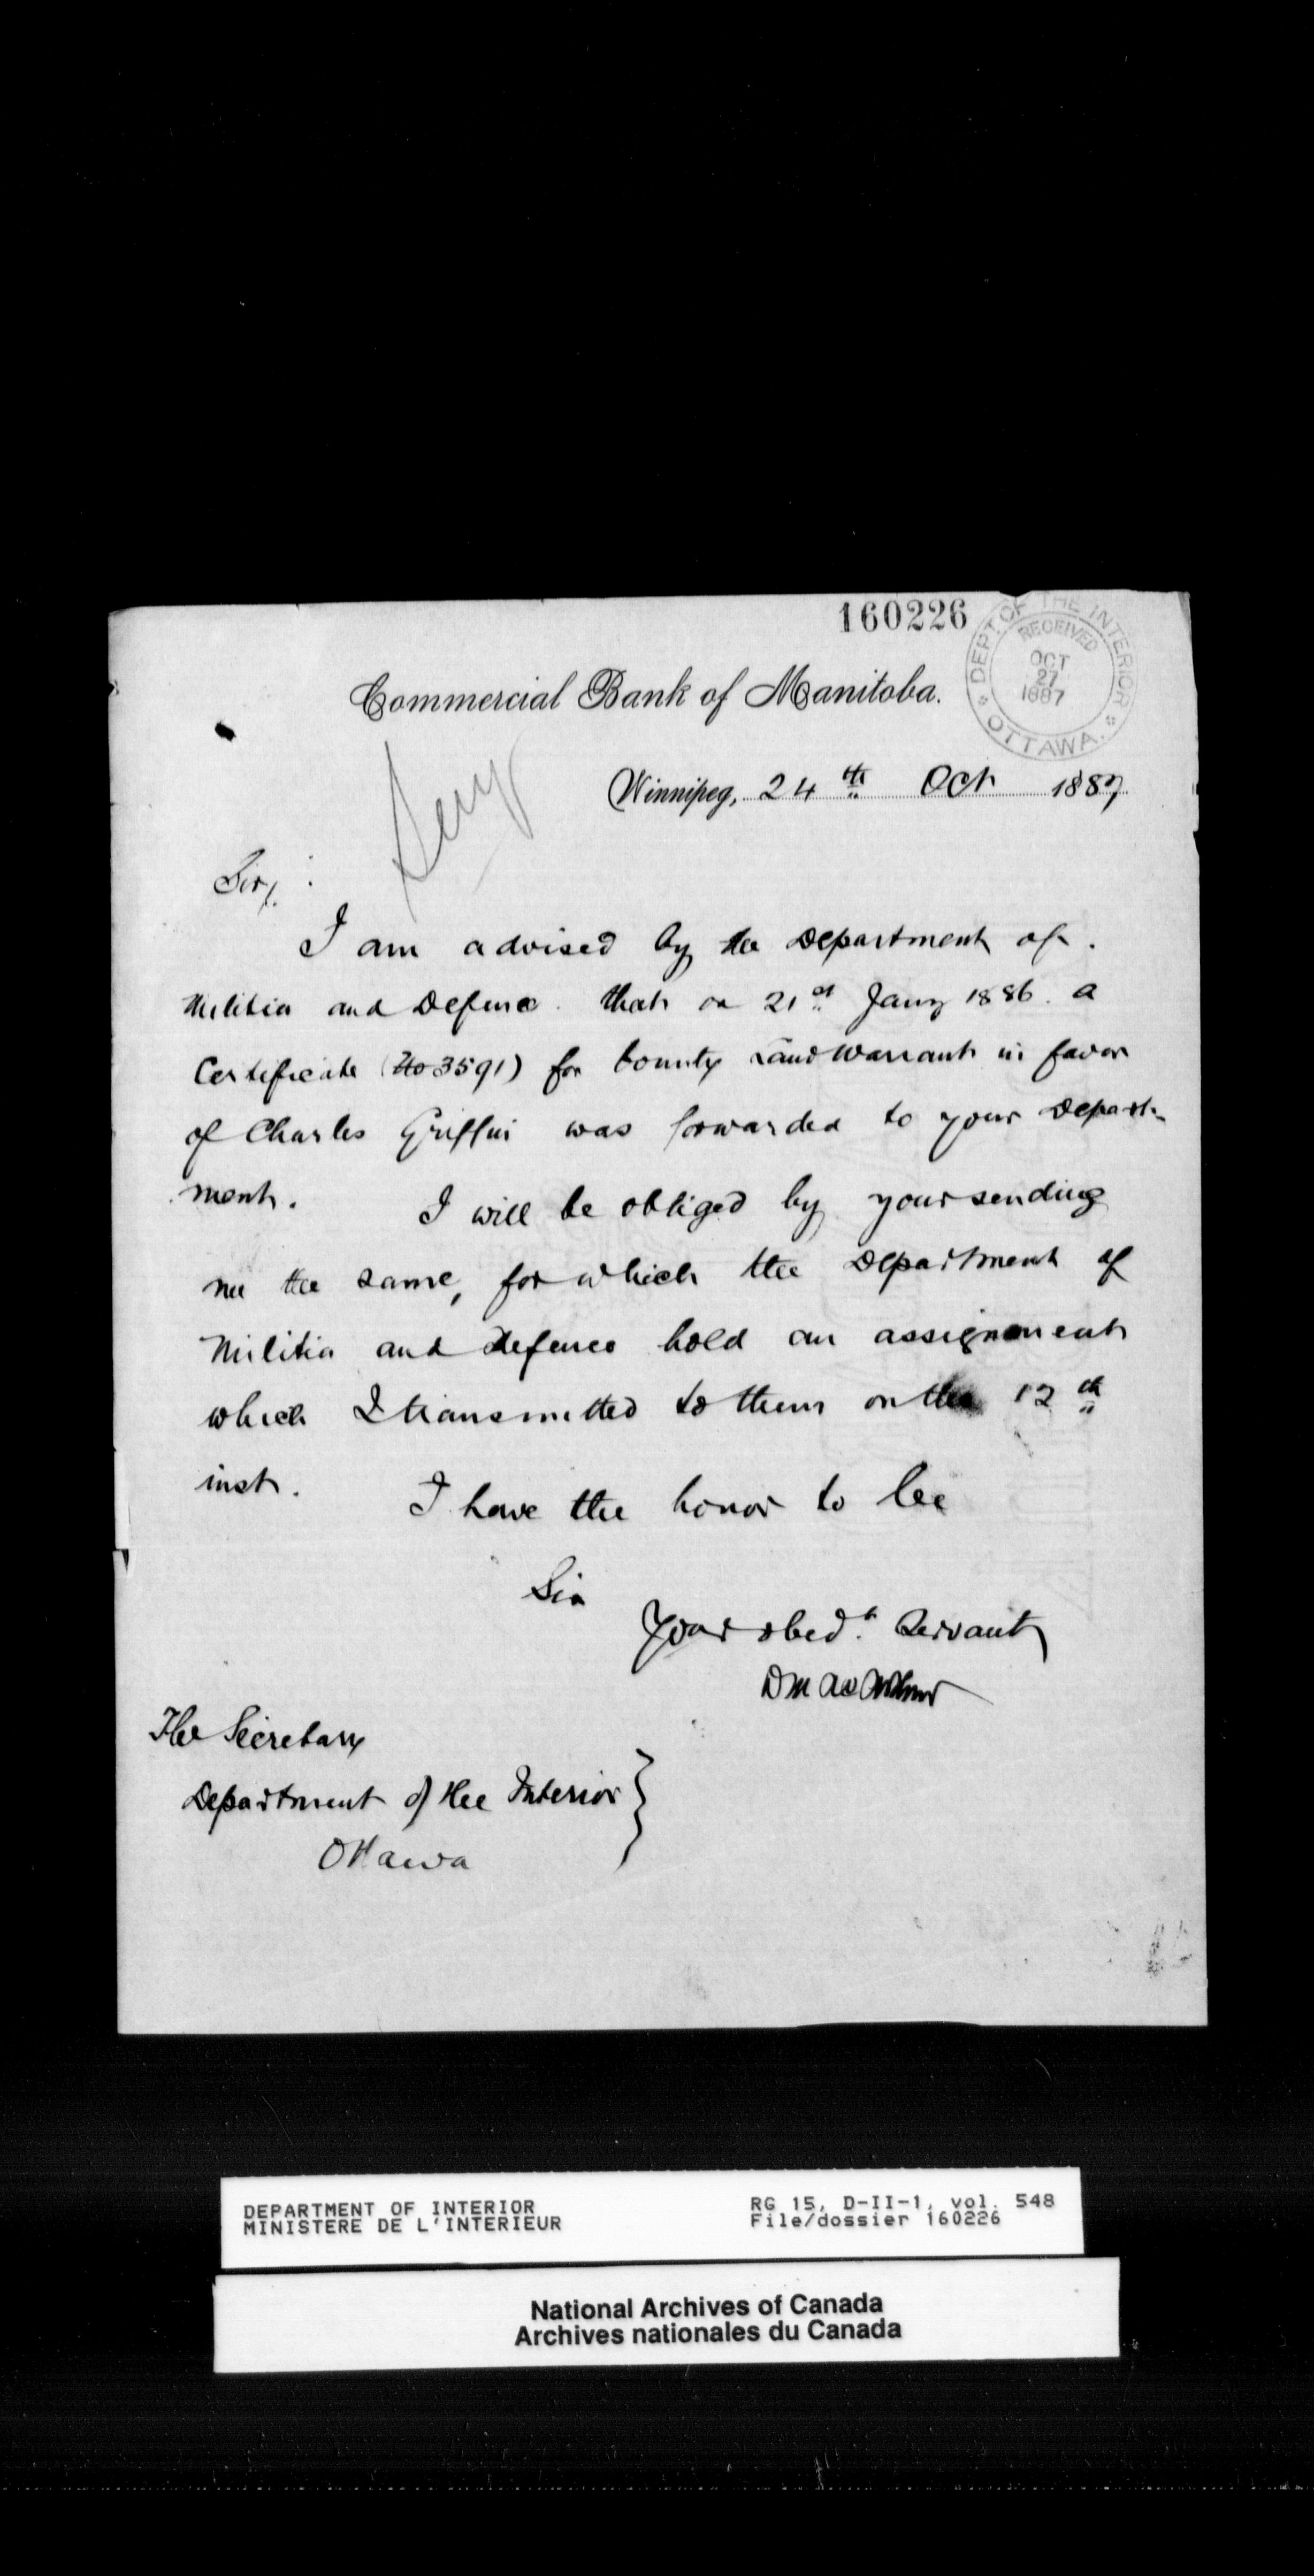 160226
DEPT. OF THE INTERIOR
RECEIVED
OCT
27
1887
OTTAWA.
Commercial Bank of Manitoba.
Winnipeg, 24th Oct 1887
Sir,
I am advised by the Department of
Militia and Defence that on 21st Jany 1886 a
Certificate (No 3591) for bounty Land Warrant in favor
of Charles Griffin was forwarded to your Depart-
ment. I will be obliged by your sending
me the same, for which the Department of
Militia and Defence hold an assignment
which I transmitted to them on the 12th
inst. I have the honor to be
Sir
Your obedt. Servant
D MacArthur
The Secretary
Department of the Interior
Ottawa
DEPARTMENT OF INTERIOR RG 15, D-II-1, vol. 548
MINISTERE DE L'INTERIEUR File/dossier 160226
National Archives of Canada
Archives nationales du Canada